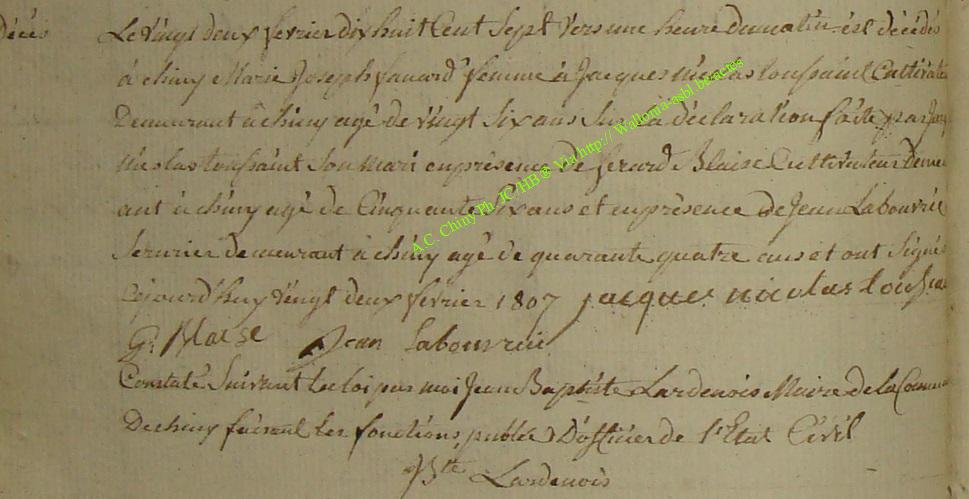 décés
Le vingt deux fevrier dix huit Cent Sept vers une heure du matin est décédée
à chiny Marie Joseph femme à Jacques Nicolas toussaint Cultivateu
Demeurant à chiny agé de vingt six ans Sur la déclaration faite par Jacq
Nicolas toussaint Son mari en présence de Gerard Blaise Cultivateur deme
ant à chiny agé de Cinquante Six ans et en présence de Jean Labouvrie
Serurier demeurant à chiny agé de quarante quatre ans et ont Signés
Cejourd'huy vingt deux fevrier 1807 jacques nicolas toussain
G. Blaise Jean Labouvrie
Constaté Suivant la loi par moi Jean Baptiste Lardenois Maire de la Commu
De chiny faisant les fonctions publics D'officier de l'Etat Civil
JBte Lardenois
A.C. Chiny Ph. IC/HB® Via http:// Wallonia-asbl.be-actes